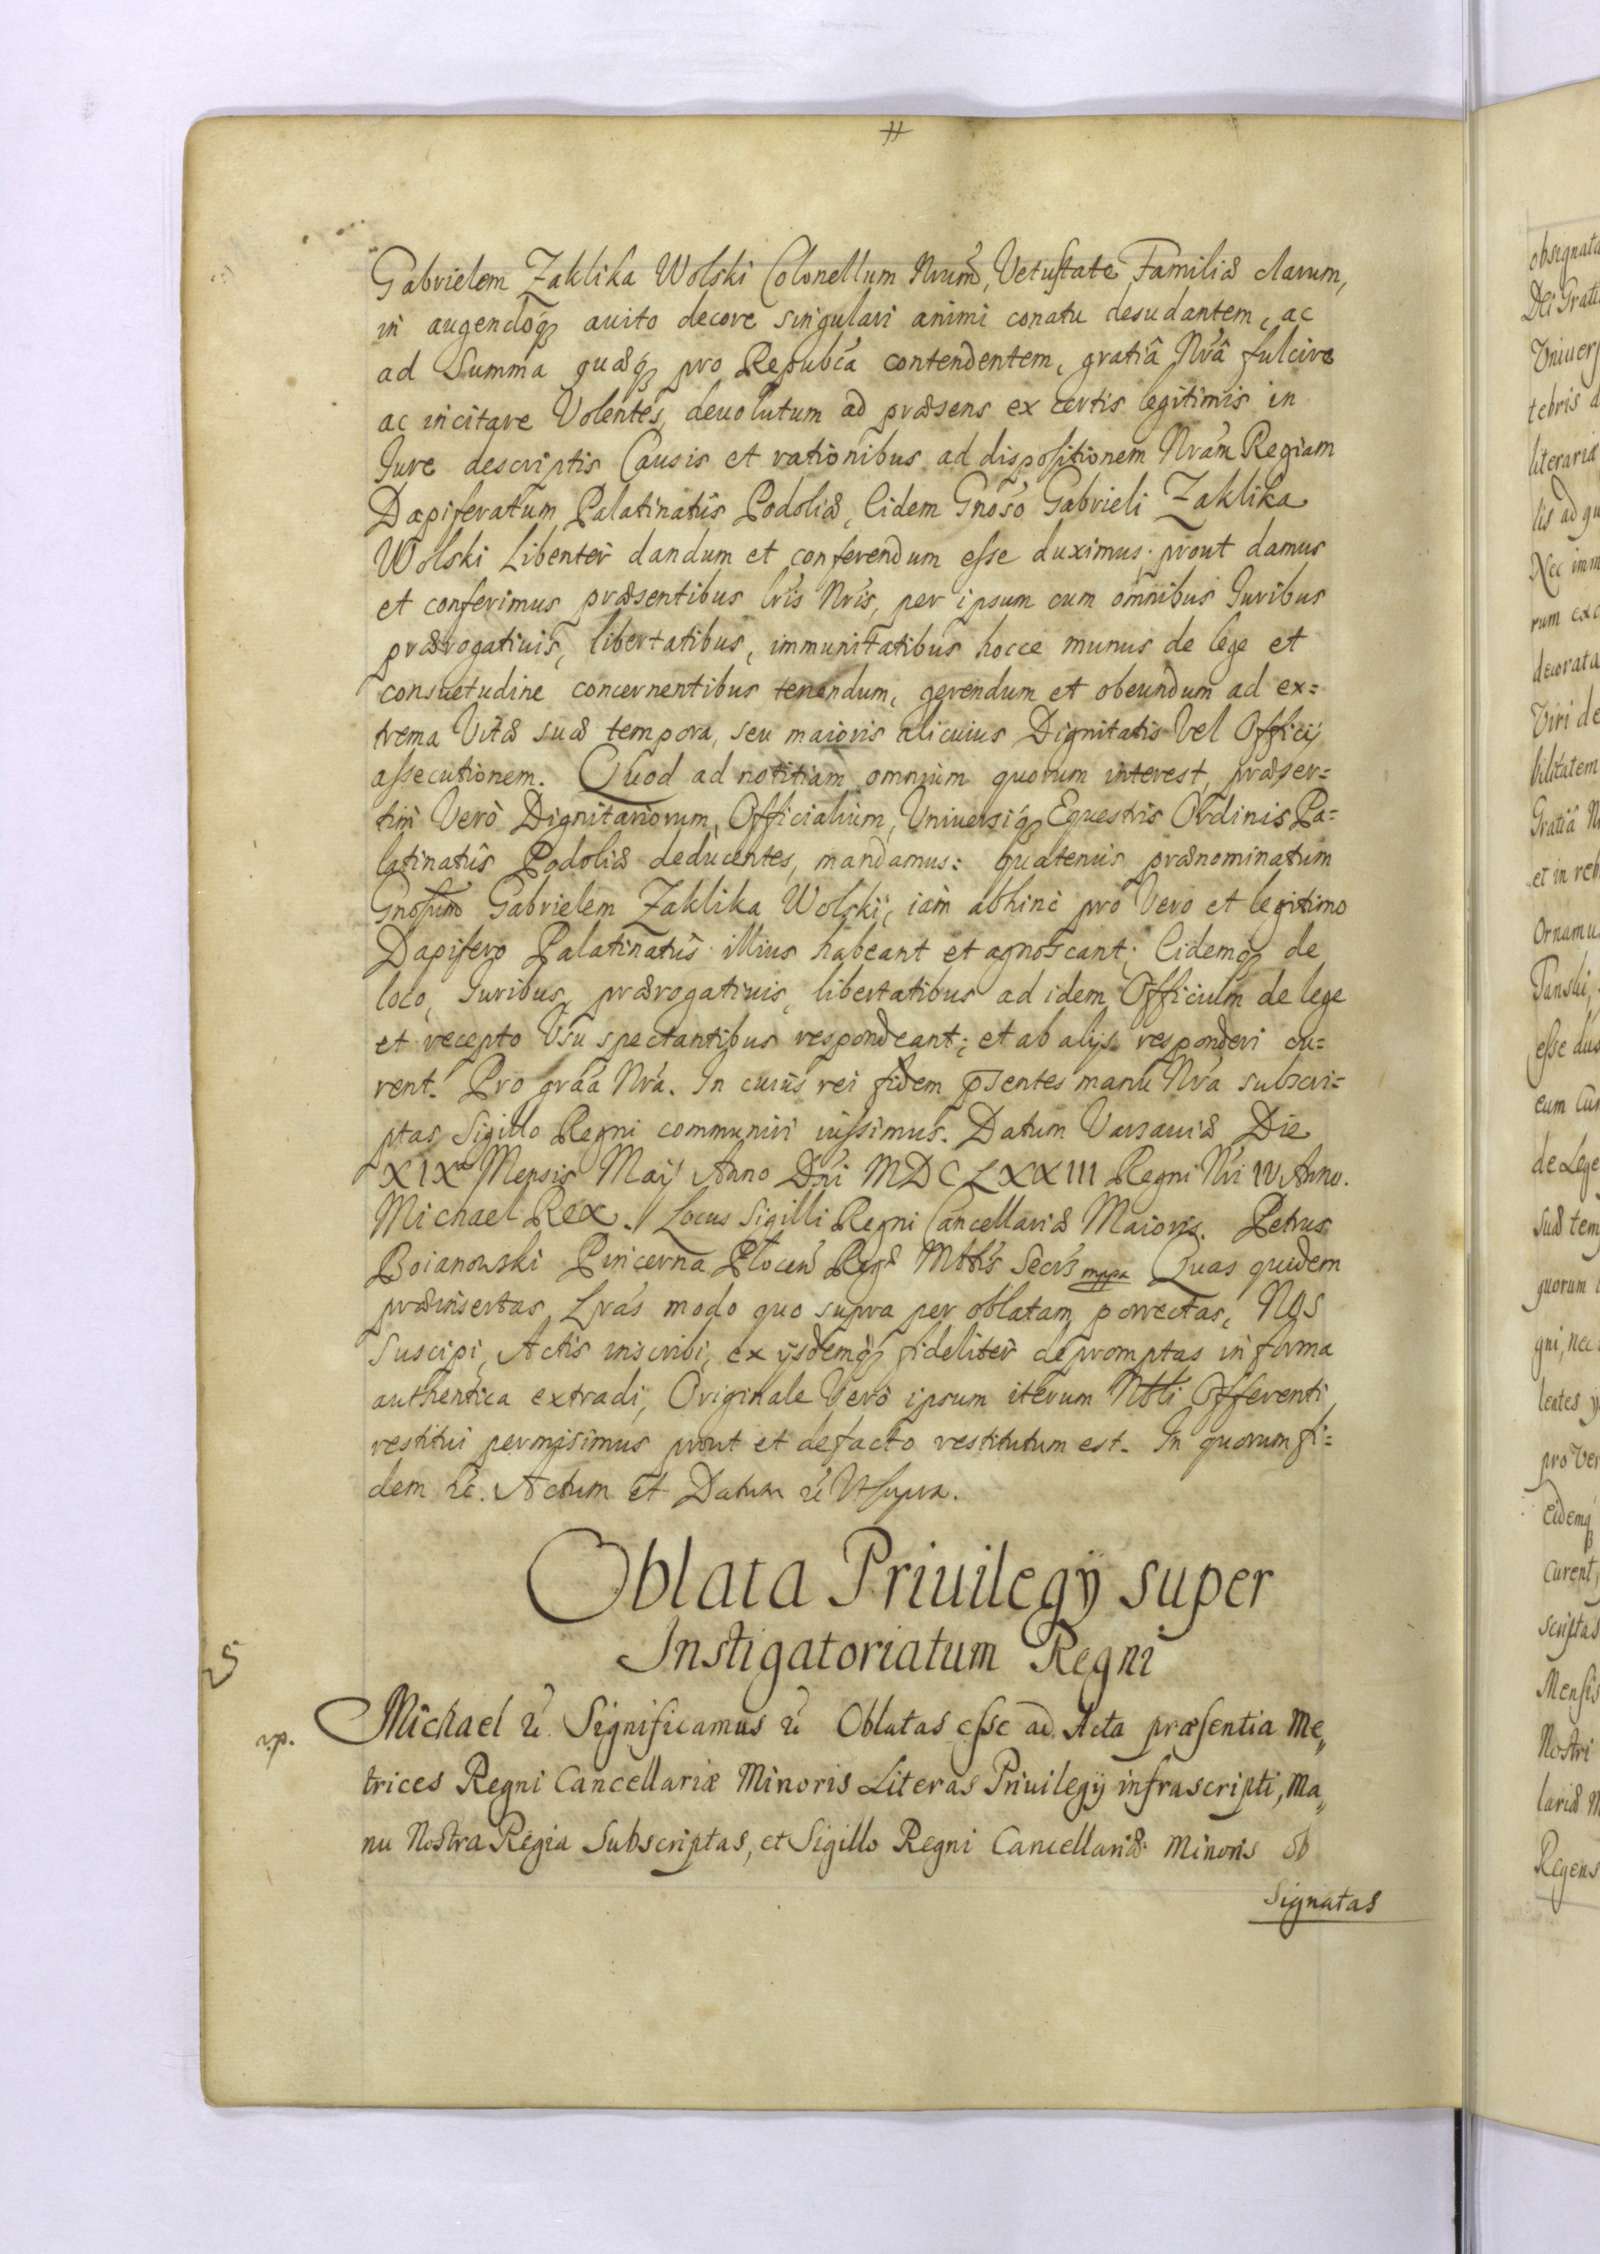 Gabrielem Zaklika Wolski Colonellum Nrum, Vetustate Familiæ clarum,
in augendoq́ꝫ auito decore singulari animi conatu desudantem, ac
ad Summa quæq́ꝫ pro Repubca contendentem, gratiâ Nrâ fulcire
ac incitare Volentes, deuolutum ad præsens ex certis legitimis in
Jure descriptis Causis et rationibus ad dispositionem Nram Regiam
Dapiferatum Palatinatûs Podoliæ, Eidem Gnoso Gabrieli Zaklika
Wolski Libenter dandum et conferendum esse duximus; prout damus
et conferimus præsentibus lris Nris, per ipsum cum omnibus Juribus
prærogatiuis, libertatibus, immunitatibus hocce munus de lege et
consuetudine concernentibus tenendum, gerendum et obeundum ad ex=
trema Vitæ suæ tempora, seu maioris alicuius Dignitatis Vel Officij
assecutionem. Quod ad notitiam omnium quorum interest, præser=
tim Verò Dignitariorum, Officialium, Vniuersiq́ꝫ Equestris Ordinis Pa=
latinatûs Podoliæ deducentes, mandamus: quatenus prænominatum
Gnosum Gabrielem Zaklika Wolski, iam abhinc pro Vero et legitimo
Dapifero Palatinatûs illius habeant et agnoscant; Eidemq́ꝫ de
loco, Juribus, prærogatiuis, libertatibus ad idem Officium de lege
et recepto Vsu spectantibus respondeant; et ab alijs responderi cu=
rent. Pro graa Nra. In cuius rei fidem pñtes manu Nra subscri=
ptas Sigillo Regni communiri iussimus. Datum Varsauiæ Die
XIXa Mensis Maij Anno Dni MDCLXXIII Regni Nri IV Anno.
Michael Rex. // Locus Sigilli Regni Cancellariæ Maioris. Petrus
Boianowski Pincerna Plocen Regæ Mttis Secrs mppa Quas quidem
præinsertas Lras modo quo supra per oblatam porrectas, NOS
Suscipi, Actis inscribi, ex ijsdemq́ꝫ fideliter depromptas in forma
authentica extradi, Originale Vero ipsum iterum Nbli Offerenti
restitui permisimus prout et defacto restitutum est. In quorum fi=
dem &c. Actum et Datum &c Vt supra.
Oblata Priuilegij super
Instigatoriatum Regni
5
Michael &c. Significamus &c Oblatas esse ad Acta præsentia Me„
trices Regni Cancellariæ Minoris Literas Priuilegij infrascripti, Ma„
nu Nostra Regia Subscriptas, et Sigillo Regni Cancellariæ Minoris ob
Signatas